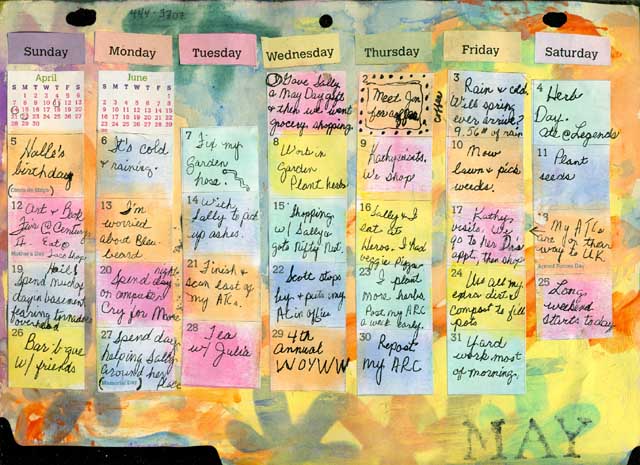 444-3707
Sunday
Monday
Tuesday
Wednesday
Thursday
Friday
Saturday
April
S M T W T F S
June
S M T W T F S
1 Gave Sally
a May Day gift
& then we went
grocery shopping
2
Meet Jen
for coffee
Coffee
3 Rain & cold
Will spring
ever arrive?
9.56" of rain
4 Herb
Day.
ate @ Legends
5
Halle's
birthday
Cinco de Mayo
6 It's cold
& raining.
7 Fix my
garden
hose.
8 Work in
Garden
Plant herbs
9
We Shop
10 Mow
lawn & pick
weeds.
11 Plant
seeds
12 Art & Book
Fair @ Century
II. Eat @
Mother's Day
13 I'm
worried
about Blue-
beard
14 With
Sally to pick
up ashes.
15 Shopping
w/ Sally &
gots Nifty Not.
16 Sally & I
eat at
Heros. I had
veggie pizza
17 Kathy
visits. We
go to her Drs
appt, then shop
18 My ATCs
are on their
way to UK
Armed Forces Day
19 Hail!
Spend much of
day in basement
fearing tornadoes
overhead
20 nights
Spend day
on computer
Cry for Moore
21 Finish &
scan last of
my ATCs.
22 Scott stops
by & puts my
AC in office
23 I plant
more herbs.
Post my ARC
a week early.
24 Use all my
extra dirt &
compost to fill
pots
25 Long
weekend
starts today
26
Bar b que
w/ friends
27 Spend day
helping Sally
around her
place
Memorial Day
28 Tea
w/ Julie
29 4th
annual
WOYWW
30 Repost
my ARC
31 Yard
work most
of morning.
MAY